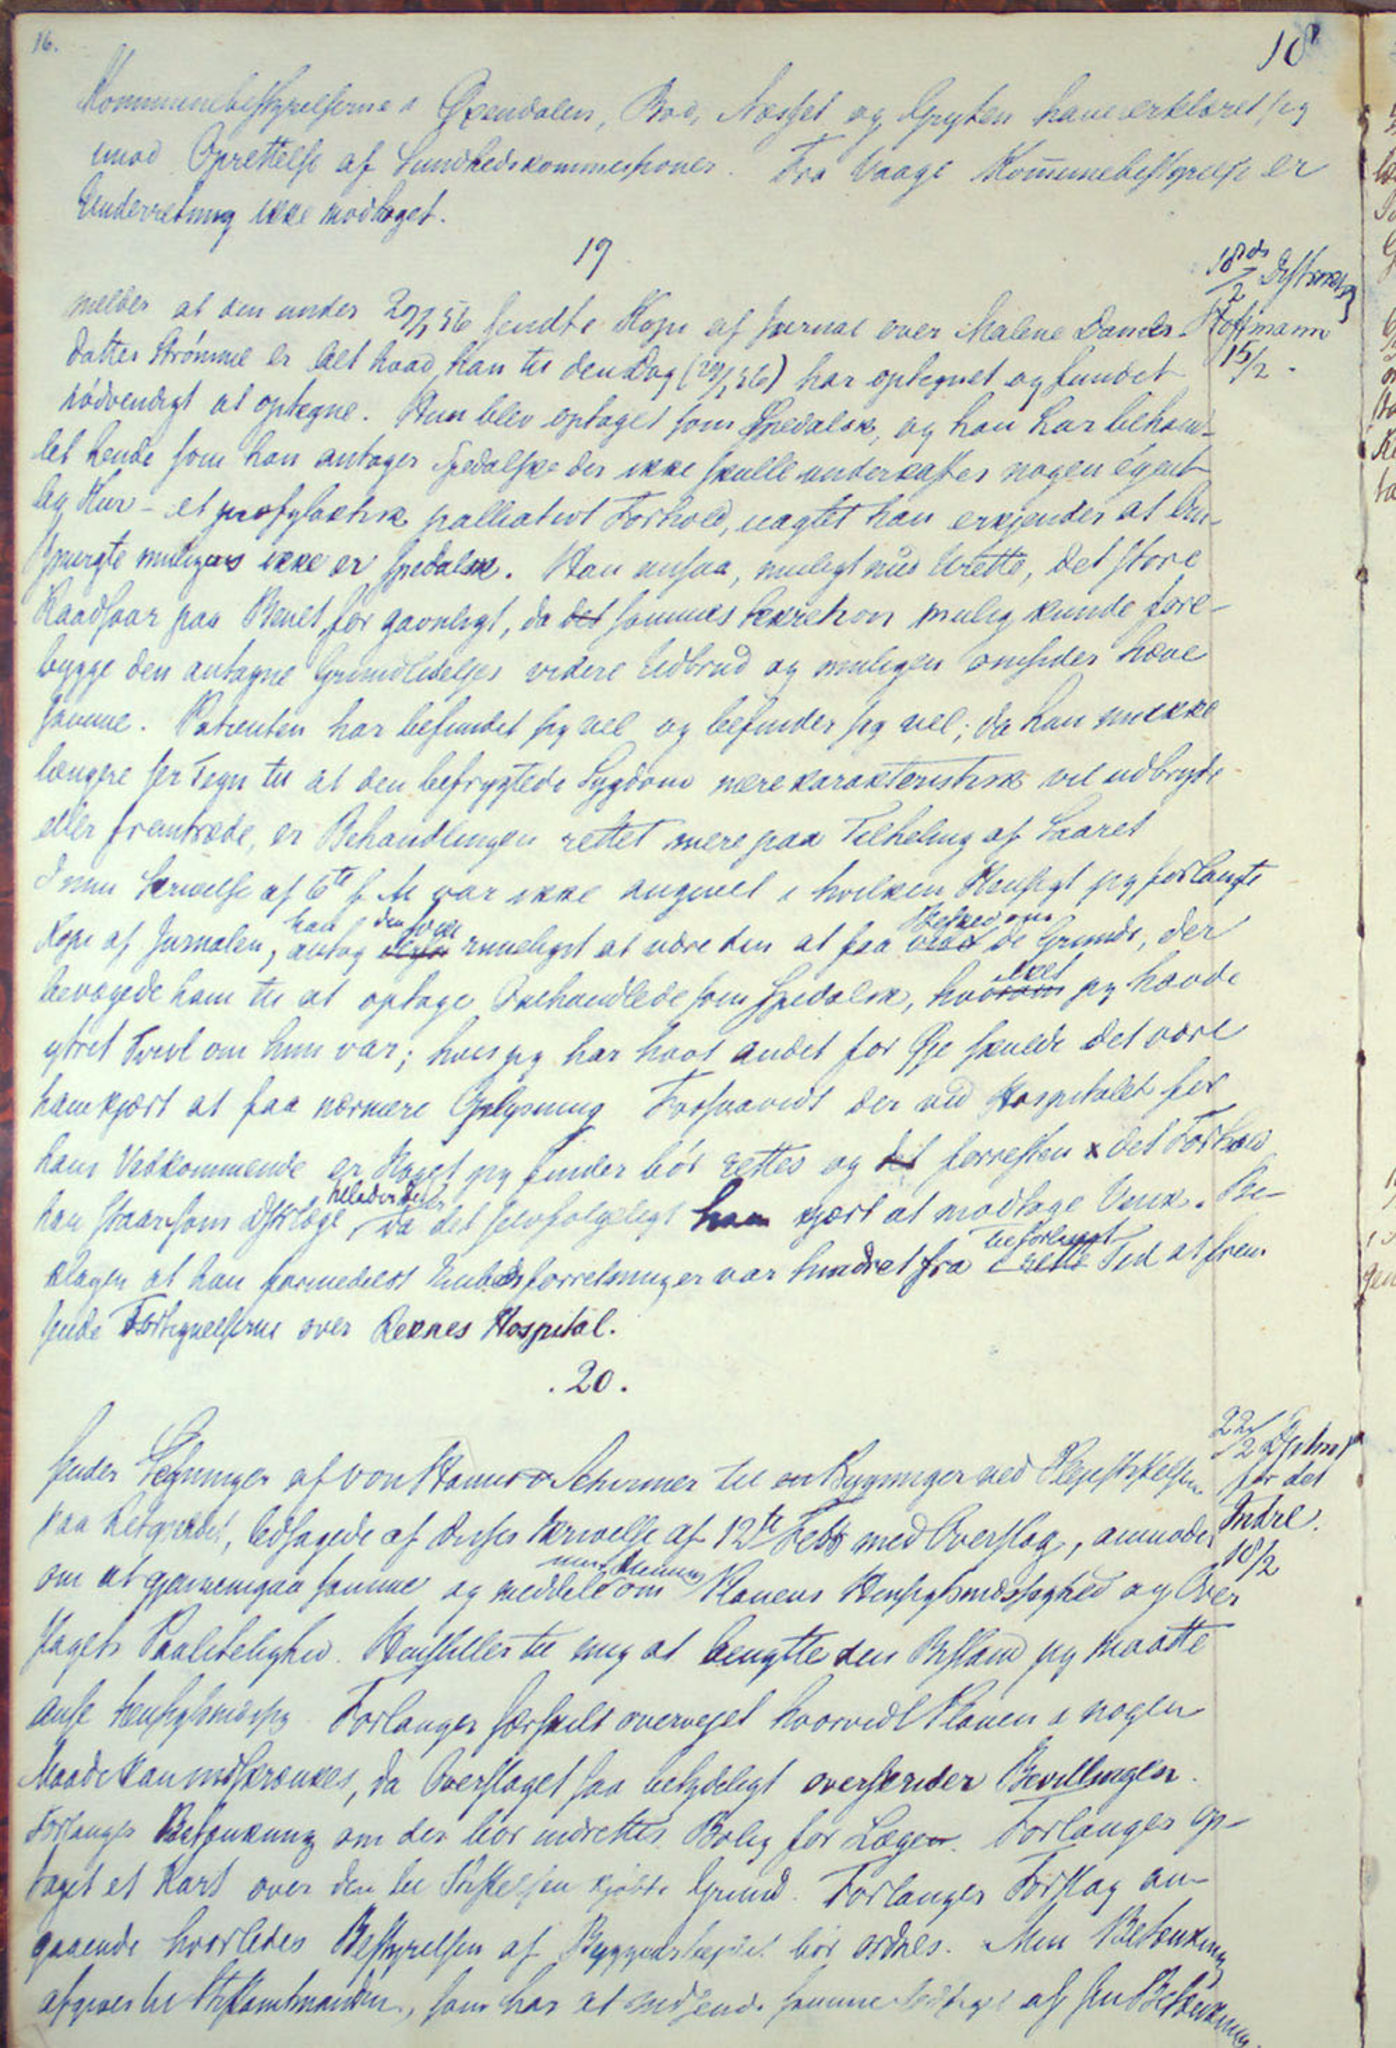 16.
18
Kommunebestyrelserne i Øxendalen, Bod, Næsset og Gryten have erklæret sig
imod Oprettelse af Sundhedskommissioner. Fra Vaage Kommunebestyrelse er
Underretning ikke modtaget.
19
18de/2 Distriktslæge
Hoffmann
15/2.
melder at den under 29/1 56 sendte Kopi af Jurnal over Malene Daniels-
datter Strømme er alt hvad han til den Dag (29/1 56) har optegnet og fundet
nödvendigt at optegne. Hun blev optaget som Spedalsk, og han har behand-
let hende som han antager Spedalske der ikke skulle underkastes nogen egent-
lig Kur - et profylaktisk palliativt Forhold, uagtet han erkjender at An-
spurgte muligens ikke er spedalsk. Han ansaa, muligt med Urette, det store
Raadsaar paa Benet for gavnligt, da det sammes Sekretion mulig kunde fore-
bygge den antagne Grundlidelses videre Udbrud og muligen omsider hæve
samme. Patienten har befundet sig vel og befinder sig vel; da han nu ikke
længere ser Tegn til at den befrygtede Sygdom mere karakteristisk vil udbryde
eller fremtræde, er Behandlingen rettet mere paa Tilheling af Saaret
I min Skrivelse af 6te f. M var ikke angivet i hvilken Hensigt jeg forlangte
Kopi af Jurnalen, han antog den som rimeligst at være den at faa Besked om de Grunde, der
bevægede ham til at optage Omhandlede som Spedalsk, hvilket jeg havde
ytret Tvivl om hun var; hvis jeg har havt andet for Øje skulde det være
ham kjært at faa nærmere Oplysning Forsaavidt der ved Hospitalet for
hans Vedkommende er Noget jeg finder bör rettes og det forresten x det Forhold
han staar som Dstrlæge, da det selvfølgeligt ham kjært at modtage Vink. Be-
klager at han formedelst Embedsforretninger var hindret fra i rette Tid at frem
sende Fortegnelserne over Reknes Hospital.
. 20 .
22/2 Dptmt
for det
Indre.
18/2
sender Tegninger af von Hanno & Schirmer til en Bygninger ved Plejestiftelsen
paa Reitgjerdet, ledsagede af disses Skrivelse af 12te Febr med Overslag, anmoder
om at gjennemgaa samme og meddele min Mening om Planens Hensigtsmæssighed og Over
slagets Paalidelighed. Henstilles til mig at benytte den Bistand jeg maatte
anse hensigtsmæssig Forlanges særskilt overvejet hvorvidt Planen i nogen
Maade kan indskrænkes, da Overslaget saa betydeligt overskrider Bevillingen.
Forlanges Betænkning om der bör indrettes Bolig for Lægen. Forlanges op-
taget et Kart over den til Stiftelsen kjøbte Grund. Forlanges Forslag an-
gaaende hvorledes Bestyrelsen af Byggearbejdet bör ordnes. Min Betænkning
afgives til Stiftamtmanden, som har at indsende samme ledsaget af sin Betænkning.